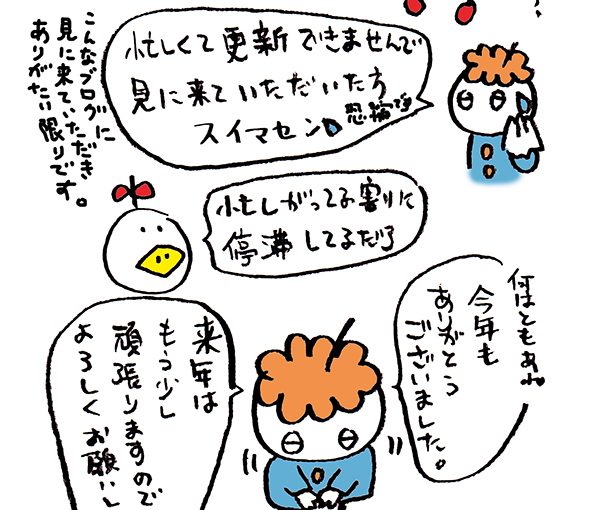 忙しくて更新できませんで
見に来ていただいた方
スイマセン
恐縮です
こんなブログに
見に来ていただき
ありがたい限りです。
忙しがってる割りに
停滞してるだろ
何はともあれ
今年も
ありがとう
ございました。
来年は
もう少し
頑張りますので
よろしくお願いし